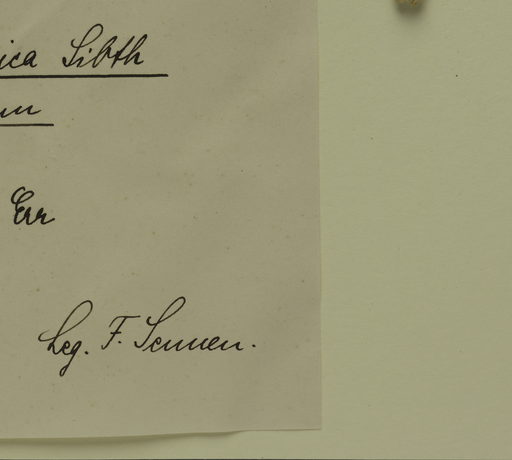 ica Sibth
Err
Leg. F. Sennen.